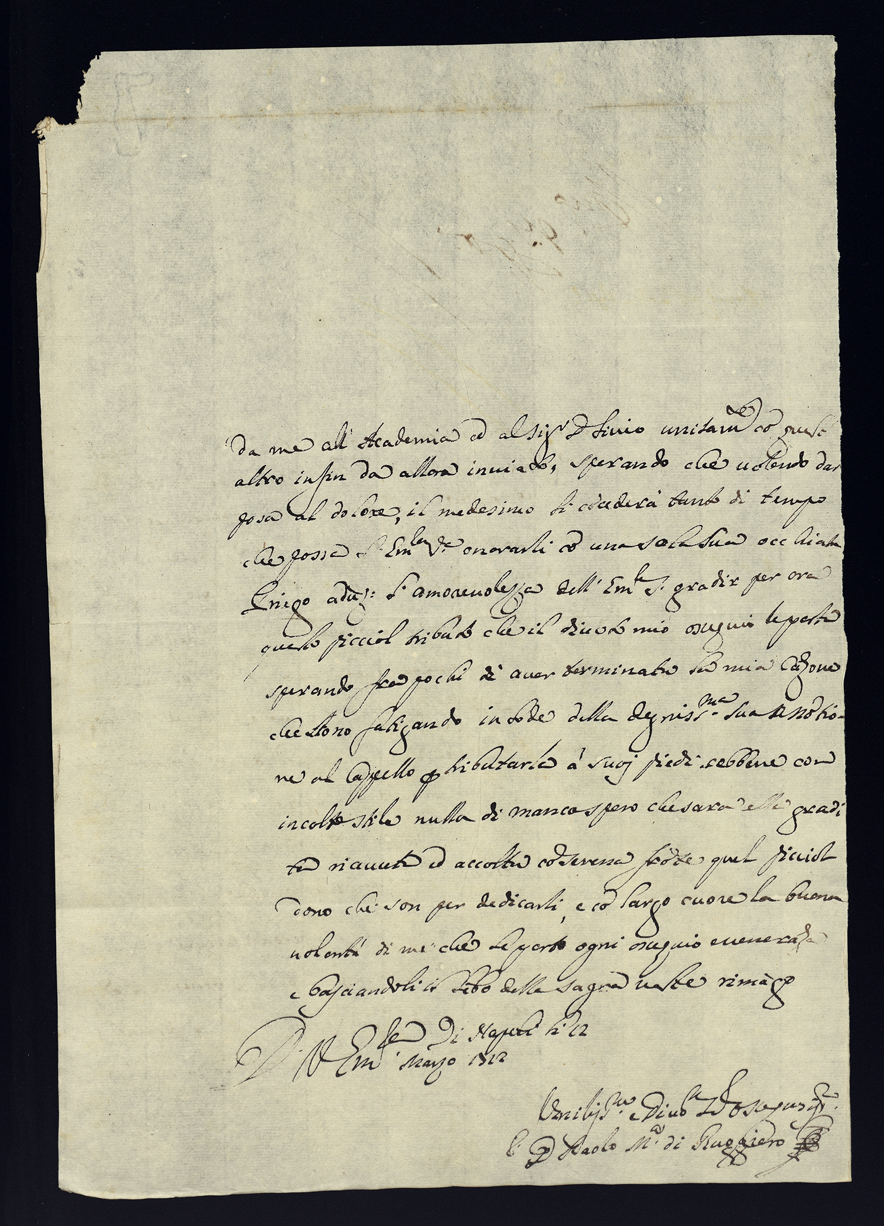 da me all' Academia ed al Sigr D Livio unitamte cō quest
altro insin da allora inviato, sperando che volendo dar
posa al dolore, il medesimo li cōcederà tanto di tempo
che possa S. Emlen onorarli cō una sola sua occhiata
Priego l'amorevolezza dell' Emza S. gradir per ora
questo picciol tributo che il divoto mio ossequio le porta
sperando fra pochi di aver terminata la mia Cāzone
che stono fatigando in lode della degnissma sua
ne al Cappello tributarla a' suoj piedi sebbene con
incolto stile nulla di manco spero che sara elle gradi
ta ricevuta ed accolta cō serena frōte quel picciol
dono che son per dedicarli, e cō largo cuore la buona
volontà di me che le porto ogni ossequio e venera
e basciandoli il lebo della sagra veste rimāgo
D. V. Em Di Napoli li 12
Marzo
Umilissmo e Divo
D Paolo Ma di Ruggiero